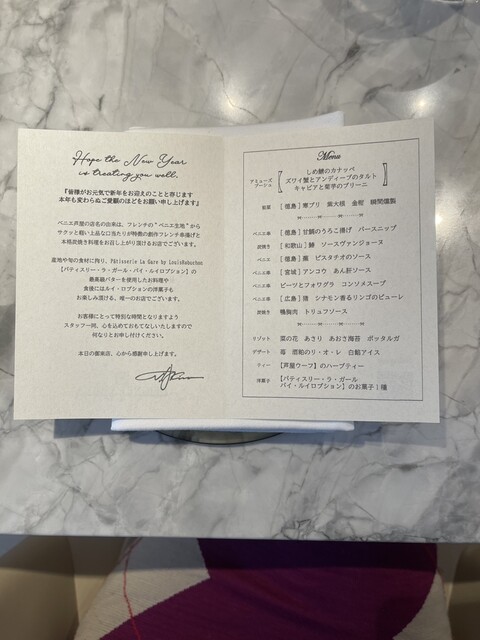 Hope the New Year
is treating you well.
『皆様がお元気で新年をお迎えのことと存じます
本年も変わらぬご愛顧のほどをお願い申し上げます』
ベニエ芦屋の店名の由来は、フレンチの“ベニエ生地”から
サクッと軽い上品な口当たりが特徴の創作フレンチ串揚げと
本格炭焼き料理をお召し上がり頂けるお店でございます。
産地や旬の食材に拘り、Pâtisserie La Gare by LouisRobuchon
【パティスリー・ラ・ガール・バイ・ルイロブション】の
最高級バターを使用したお料理や
食後にはルイ・ロブションの洋菓子も
お楽しみ頂ける、唯一のお店でございます。
お客様にとって特別な時間となりますよう
スタッフ一同、心を込めておもてなしいたしますので
何なりとお申し付けください。
本日の御来店、心から感謝申し上げます。
Menu
アミューズ
ブーシュ
しめ鯖のカナッペ
ズワイ蟹とアンディーブのタルト
キャビアと菊芋のブリーニ
前菜 [徳島]寒ブリ 紫大根 金柑 瞬間燻製
ベニエ串 [徳島]甘鯛のうろこ揚げ パースニップ
炭焼き [和歌山] ソースヴァンジョーヌ
ベニエ [徳島] ピスタチオソース
ベニエ串 [宮城]アンコウ あん肝ソース
ベニエ串 ビーツとフォワグラ コンソメスープ
ベニエ串 [広島]猪 シナモン香るリンゴのピューレ
炭焼き 鴨胸肉 トリュフソース
リゾット 菜の花 あさり あおさ海苔 ボッタルガ
デザート 苺 酒粕のリ・オ・レ 白餡アイス
ティー 【芦屋ウーフ】のハーブティー
洋菓子 【パティスリー・ラ・ガール
バイ・ルイロブション】のお菓子1種